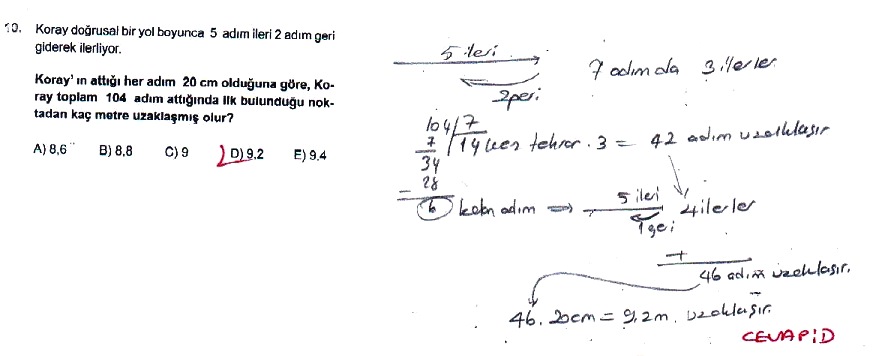 10. Koray doğrusal bir yol boyunca 5 adım ileri 2 adım geri
giderek ilerliyor.
Koray'ın attığı her adım 20 cm olduğuna göre, Ko-
ray toplam 104 adım attığında ilk bulunduğu nok-
tadan kaç metre uzaklaşmış olur?
A) 8,6 B) 8,8 C) 9 D) 9,2 E) 9,4
5 ileri
2 geri
7 adımda 3 ilerler
104 7
7 14 kez tekrar . 3 = 42 adım uzaklaşır
34
28
6 kalan adım ⇒ 5 ileri 4 ilerler
1 geri
+
46 adım uzaklaşır.
46 . 20cm = 9,2m. uzaklaşır.
CEVAP: D